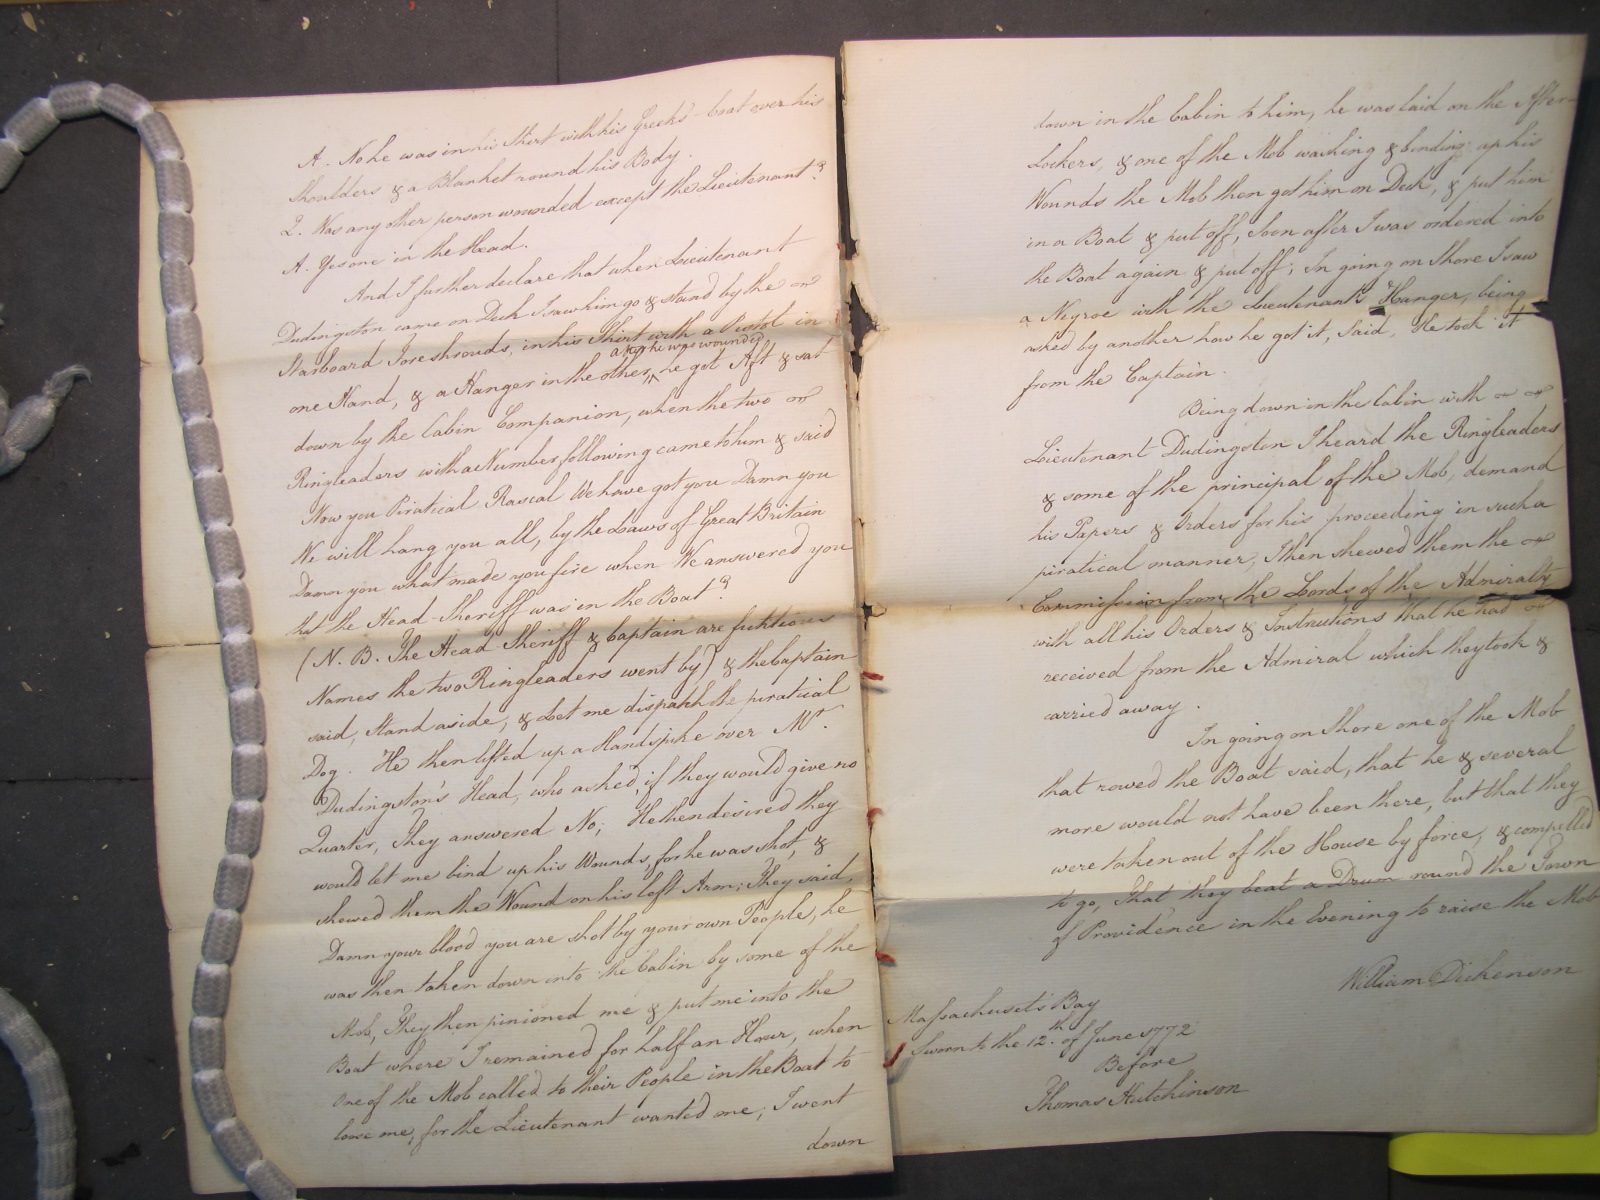 A. No he was in his Shirt with his Great Coat over his
Shoulders & a Blanket round his Body.
Q. Was any other person wounded except the Lieutenant?
A. Yes one in the Head.
And I further declare that when Lieutenant
Dudingston came on Deck I saw him go & stand by the
Starboard Foreshrouds, in his Shirt with a Pistol in
one Hand, & a Hanger in the other, after he was wounded he got Aft & sat
down by the Cabin Companion, when the two
Ringleaders with a Number following came to him & said
Now you Piratical Rascal We have got you Damn you
We will hang you all, by the Laws of Great Britain
Damn you what made you fire when We answered you
that the Head Sheriff was in the Boat?
(N.B. The Head Sheriff & Captain are fictitious
Names the two Ringleaders went by) & the Captain
said, Stand aside, & Let me dispatch the piratical
Dog. He then lifted up a Handspike over Mr.
Dudingston's Head, who asked, if they would give no
Quarter, They answered No; He then desired they
would let me bind up his Wounds, for he was shot, &
shewed them the Wound on his left Arm; They said,
Damn your blood you are shot by your own People, he
was then taken down into the Cabin by some of the
Mob, They then pinioned me & put me into the
Boat where I remained for half an Hour, when
One of the Mob called to their People in the Boat to
loose me, for the Lieutenant wanted me; I went
down
down in the Cabin to him, he was laid on the After-
Lockers, & one of the Mob washing & binding up his
Wounds the Mob then got him on Deck, & put him
in a Boat & put off, Soon after I was ordered into
the Boat again & put off; In going on Shore I saw
a Negroe with the Lieutenant's Hanger, being
asked by another how he got it, Said, He took it
from the Captain.
Being down in the Cabin with
Lieutenant Dudingston I heard the Ringleaders
& some of the principal of the Mob, demand
his Papers & Orders for his proceeding in such a
piratical manner, I then shewed them the
Commission from the Lords of the Admiralty
with all his Orders & Instructions that he had
received from the Admiral which they took &
carried away.
In going on Shore one of the Mob
that rowed the Boat said, that he & several
more would not have been there, but that they
were taken out of the House by force, & compelled
to go, That they beat a Drum round the Town
of Providence in the Evening to raise the Mob
William Dickenson
Massachusets Bay
Sworn to the 12th. of June 1772
Before
Thomas Hutchinson